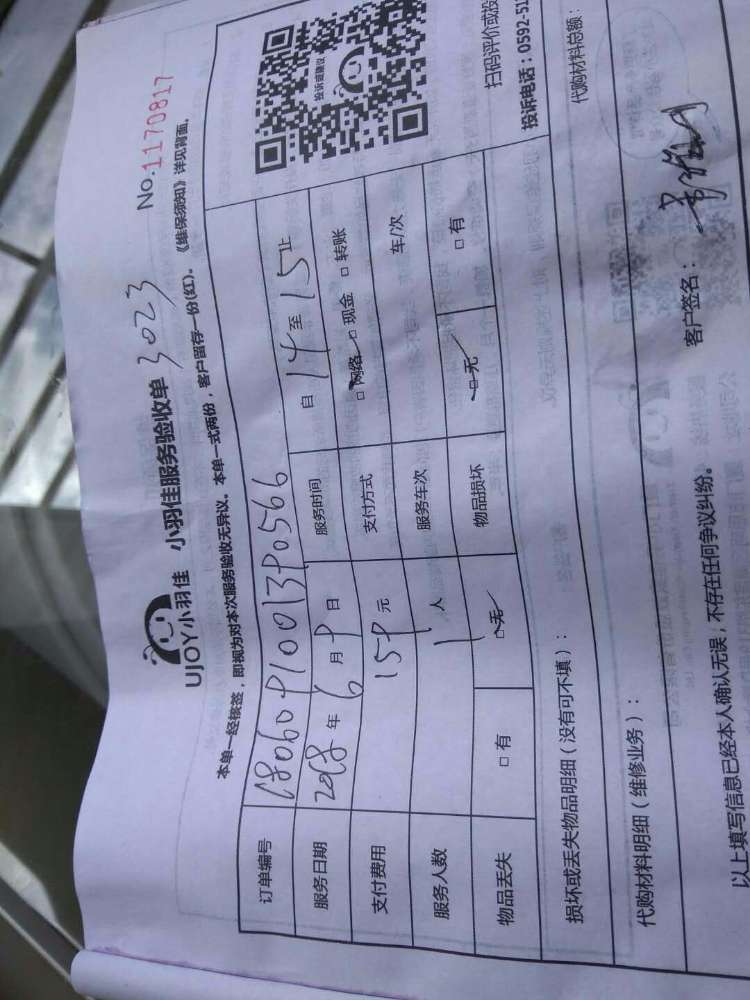 UJOY小羽佳 小羽佳服务验收单 3023 No.1170817
本单一经核签，即视为对本次服务验收无异议。本单一式两份，客户留存一份(红)。《维保须知》详见背面。
订单编号 1806091001390566
服务日期 2018年6月9日 服务时间 自14至15止
支付费用 159元 支付方式 □网络 □现金 □转账
服务人数 1人 服务车次 车/次
物品丢失 □有 □无 物品损坏 □无 □有
投诉或建议
扫码评价或投
投诉电话：0592-51
损坏或丢失物品明细（没有可不填）：
代购材料明细（维修业务）：
代购材料总额：
以上填写信息已经本人确认无误，不存在任何争议纠纷。
客户签名：